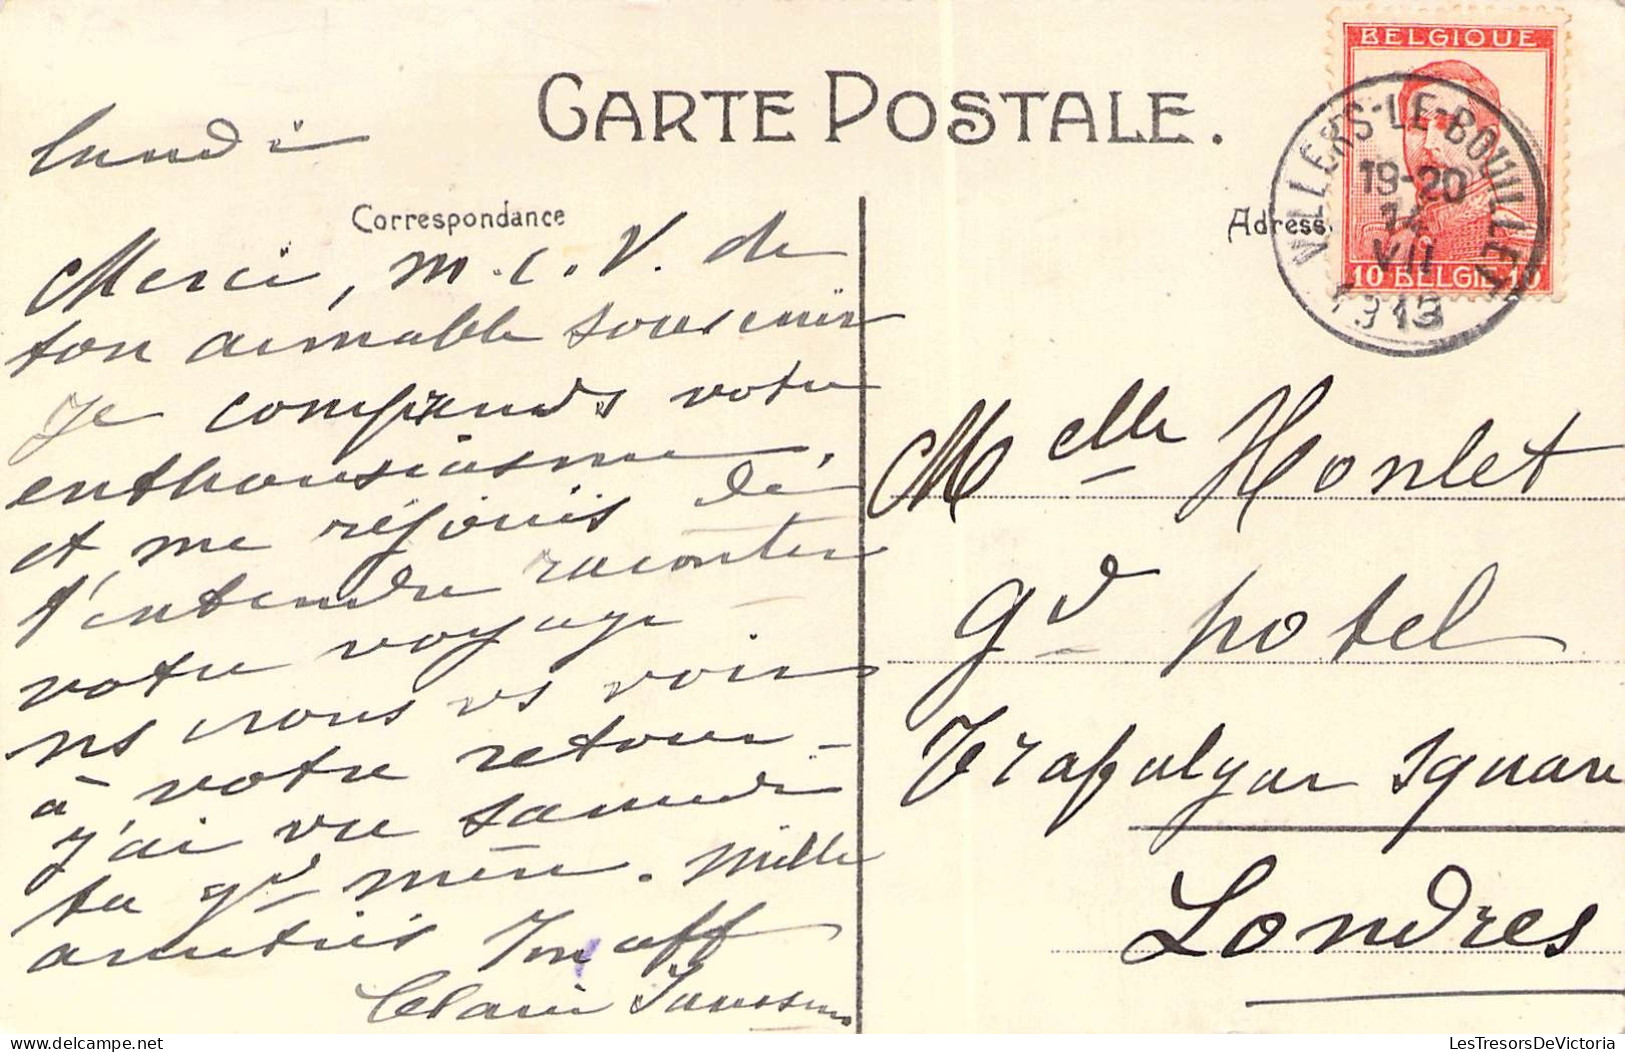 CARTE POSTALE.
lundi
Correspondance
Merci, M. C. V. de
ton aimable souvenir
Je comprends votre
enthousiasme,
et me réjouis de
t'entendre raconter
votre voyage
ns irons vs voir
à votre retour –
j'ai vu samedi
ta gd mère. Mille
amitiés
BELGIQUE
10 BELGIE 10
VILLERS-LE-BOUILLET
19-20
14
VII
1913
Adresse
Melle Honlet
gd hotel
Trafalgar Square
Londres
LesTresorsDeVictoria